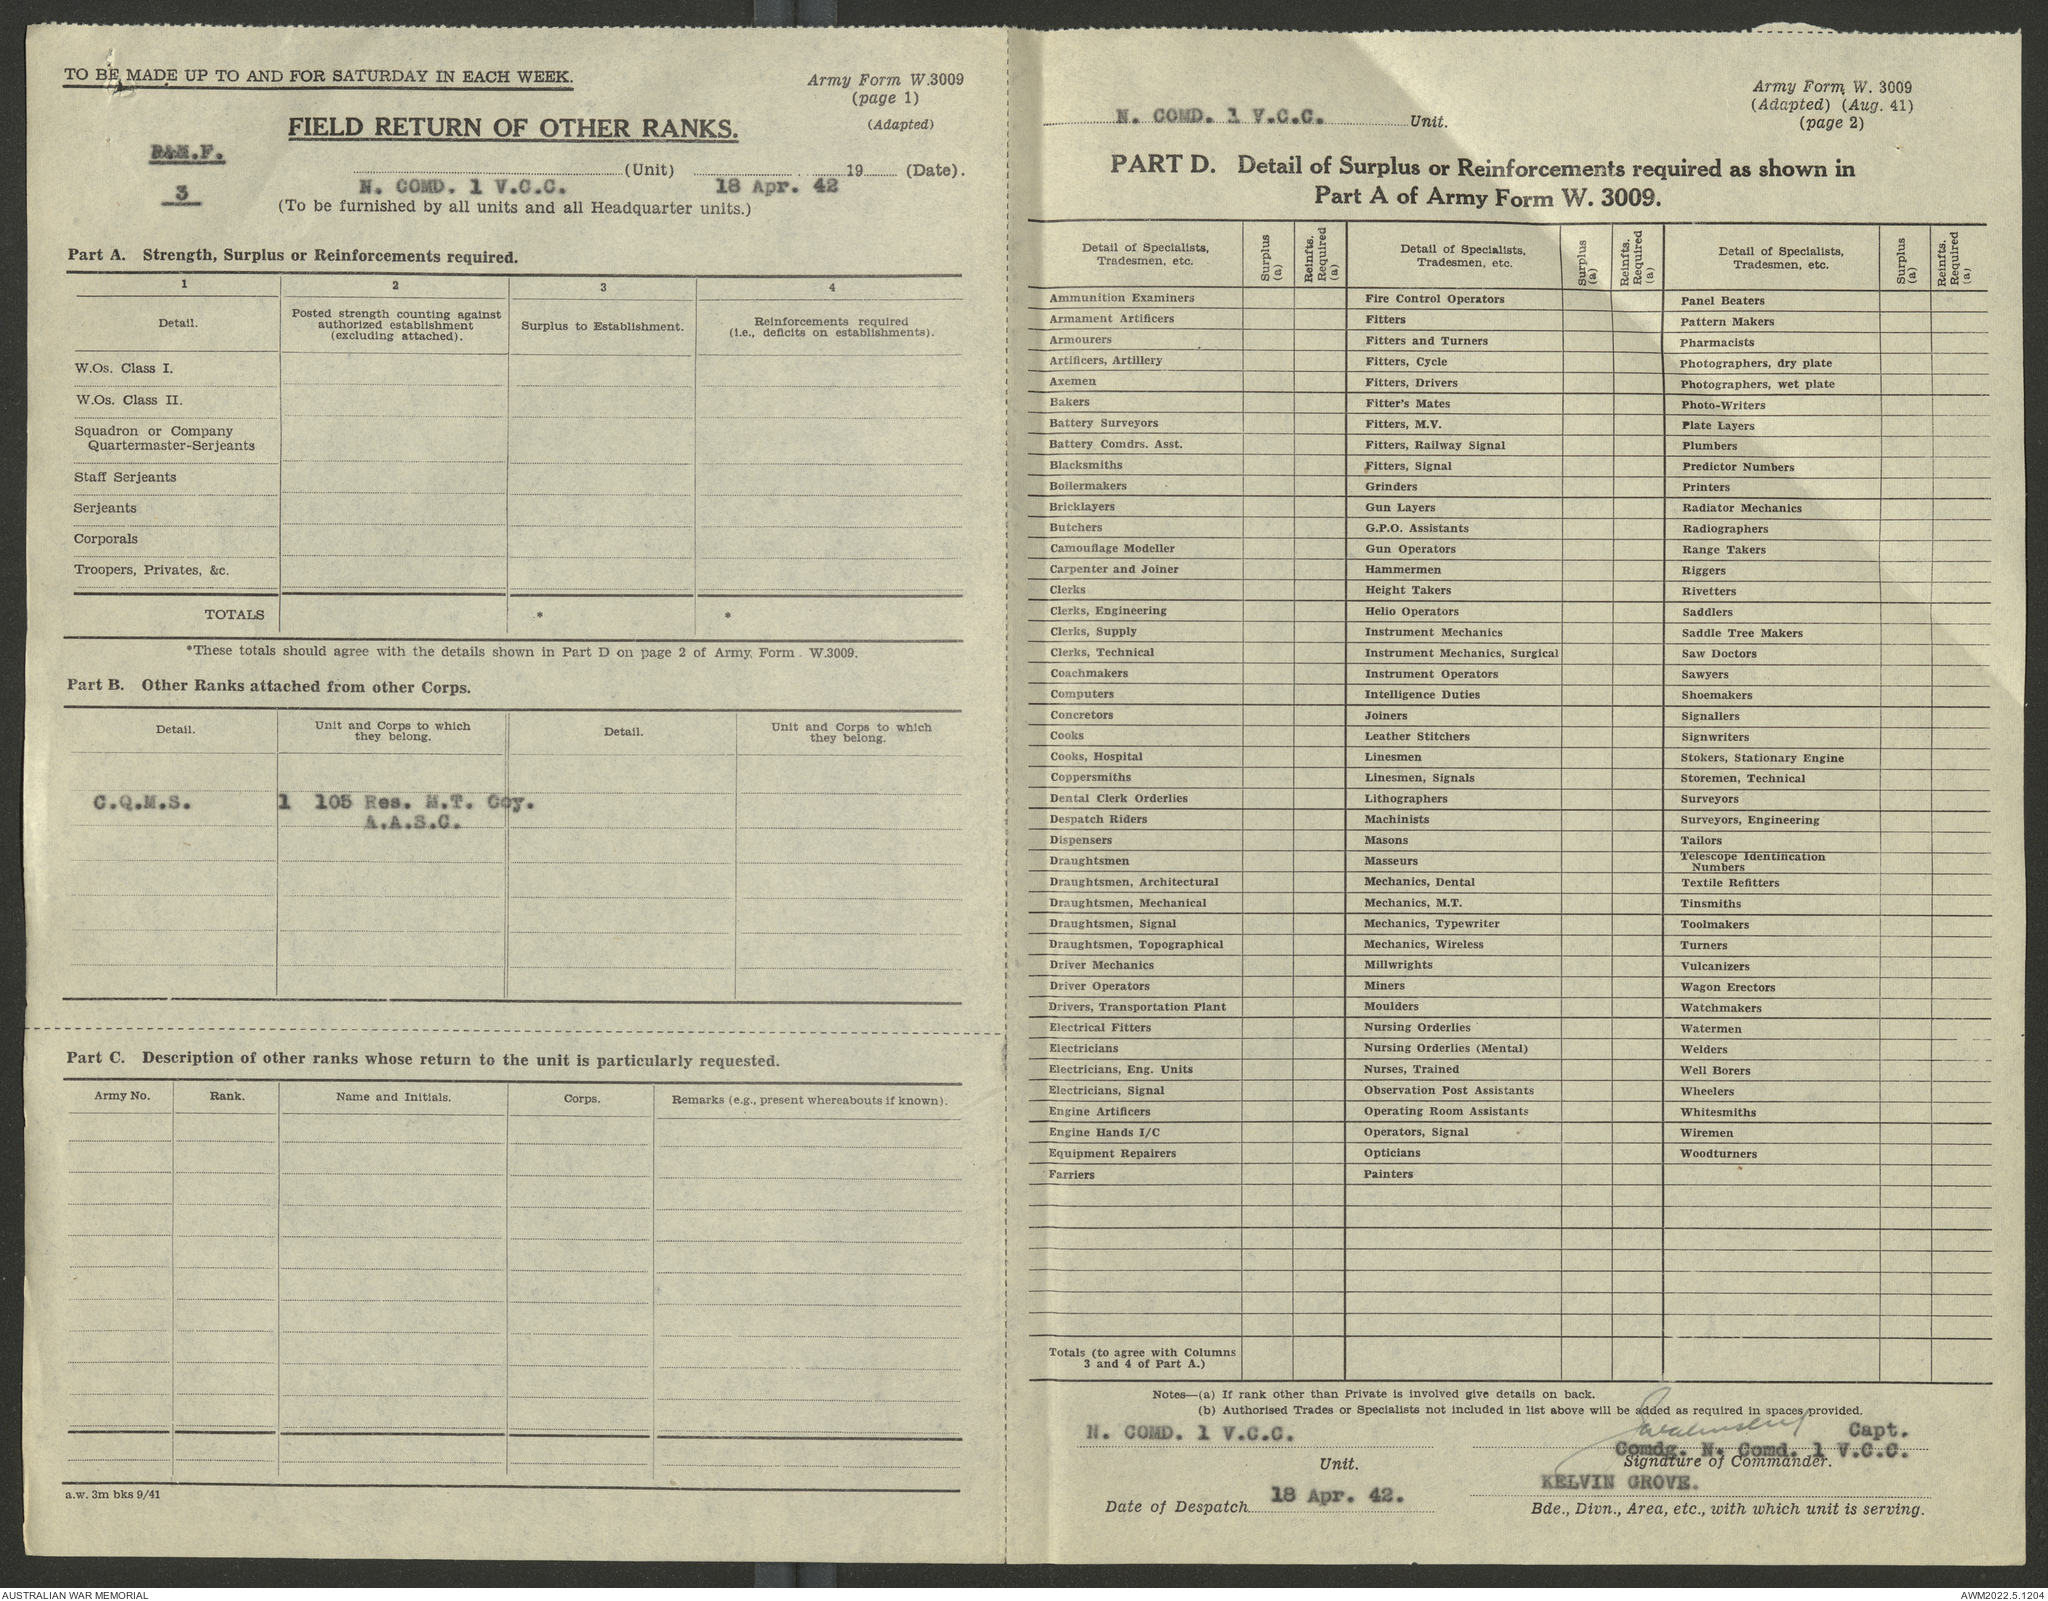 TO BE MADE UP TO AND FOR SATURDAY IN EACH WEEK.
Army Form W.3009
(page 1)
(Adapted)
FIELD RETURN OF OTHER RANKS.
3
(Unit) 19 (Date).
N. COMD. 1 V.C.C. 18 Apr. 42
(To be furnished by all units and all Headquarter units.)
Part A. Strength, Surplus or Reinforcements required.
1 2 3 4
Detail.
Posted strength counting against
authorized establishment
(excluding attached).
Surplus to Establishment.
Reinforcements required
(i.e., deficits on establishments).
W.Os. Class I.
W.Os. Class II.
Squadron or Company
Quartermaster-Serjeants
Staff Serjeants
Serjeants
Corporals
Troopers, Privates, &c.
TOTALS * *
*These totals should agree with the details shown in Part D on page 2 of Army Form W.3009.
Part B. Other Ranks attached from other Corps.
Detail.
Unit and Corps to which
they belong.
Detail.
Unit and Corps to which
they belong.
C.Q.M.S. 1 105 Res. M.T. Coy.
A.A.S.C.
Part C. Description of other ranks whose return to the unit is particularly requested.
Army No. Rank. Name and Initials. Corps. Remarks (e.g., present whereabouts if known).
a.w. 3m bks 9/41
Army Form W. 3009
(Adapted) (Aug. 41)
(page 2)
N. COMD. 1 V.C.C. Unit.
PART D. Detail of Surplus or Reinforcements required as shown in
Part A of Army Form W. 3009.
Detail of Specialists,
Tradesmen, etc.
Surplus
(a)
Reinfts.
Required
(a)
Detail of Specialists,
Tradesmen, etc.
Surplus
(a)
Reinfts.
Required
(a)
Detail of Specialists,
Tradesmen, etc.
Surplus
(a)
Reinfts.
Required
(a)
Ammunition Examiners
Armament Artificers
Armourers
Artificers, Artillery
Axemen
Bakers
Battery Surveyors
Battery Comdrs. Asst.
Blacksmiths
Boilermakers
Bricklayers
Butchers
Camouflage Modeller
Carpenter and Joiner
Clerks
Clerks, Engineering
Clerks, Supply
Clerks, Technical
Coachmakers
Computers
Concretors
Cooks
Cooks, Hospital
Coppersmiths
Dental Clerk Orderlies
Despatch Riders
Dispensers
Draughtsmen
Draughtsmen, Architectural
Draughtsmen, Mechanical
Draughtsmen, Signal
Draughtsmen, Topographical
Driver Mechanics
Driver Operators
Drivers, Transportation Plant
Electrical Fitters
Electricians
Electricians, Eng. Units
Electricians, Signal
Engine Artificers
Engine Hands I/C
Equipment Repairers
Farriers
Fire Control Operators
Fitters
Fitters and Turners
Fitters, Cycle
Fitters, Drivers
Fitter's Mates
Fitters, M.V.
Fitters, Railway Signal
Fitters, Signal
Grinders
Gun Layers
G.P.O. Assistants
Gun Operators
Hammermen
Height Takers
Helio Operators
Instrument Mechanics
Instrument Mechanics, Surgical
Instrument Operators
Intelligence Duties
Joiners
Leather Stitchers
Linesmen
Linesmen, Signals
Lithographers
Machinists
Masons
Masseurs
Mechanics, Dental
Mechanics, M.T.
Mechanics, Typewriter
Mechanics, Wireless
Millwrights
Miners
Moulders
Nursing Orderlies
Nursing Orderlies (Mental)
Nurses, Trained
Observation Post Assistants
Operating Room Assistants
Operators, Signal
Opticians
Painters
Panel Beaters
Pattern Makers
Pharmacists
Photographers, dry plate
Photographers, wet plate
Photo-Writers
Plate Layers
Plumbers
Predictor Numbers
Printers
Radiator Mechanics
Radiographers
Range Takers
Riggers
Rivetters
Saddlers
Saddle Tree Makers
Saw Doctors
Sawyers
Shoemakers
Signallers
Signwriters
Stokers, Stationary Engine
Storemen, Technical
Surveyors
Surveyors, Engineering
Tailors
Telescope Identification
Numbers
Textile Refitters
Tinsmiths
Toolmakers
Turners
Vulcanizers
Wagon Erectors
Watchmakers
Watermen
Welders
Well Borers
Wheelers
Whitesmiths
Wiremen
Woodturners
Totals (to agree with Columns
3 and 4 of Part A.)
Notes—(a) If rank other than Private is involved give details on back.
(b) Authorised Trades or Specialists not included in list above will be added as required in spaces provided.
N. COMD. 1 V.C.C.
Unit.
Capt.
Comdg. N. Comd. 1 V.C.C.
Signature of Commander.
KELVIN GROVE.
Date of Despatch 18 Apr. 42.
Bde., Divn., Area, etc., with which unit is serving.
AUSTRALIAN WAR MEMORIAL
AWM2022.5.1204